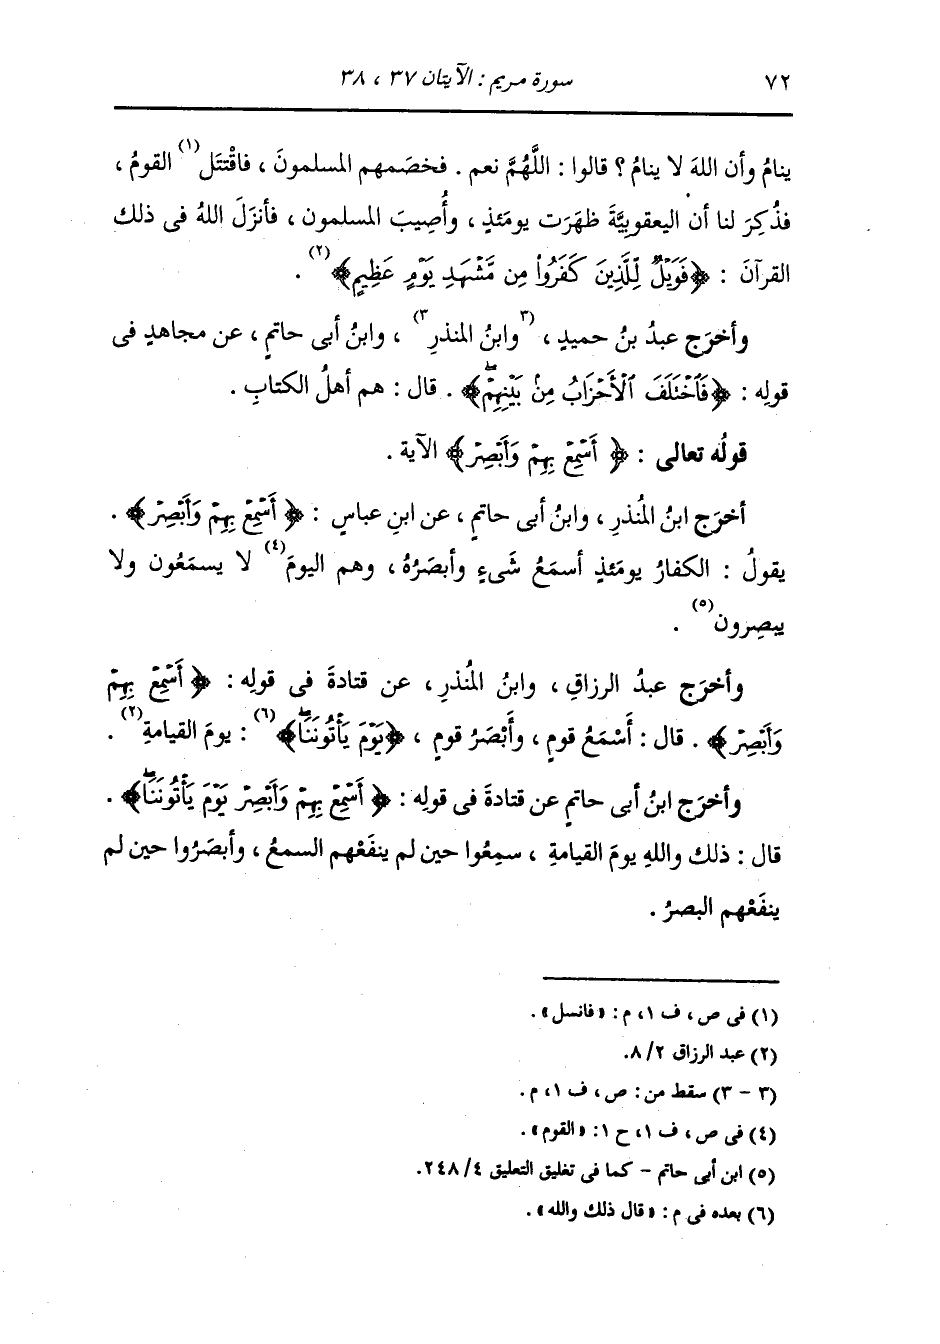 ٧٢ سورة مريم : الآيتان ٣٧ ، ٣٨
ينامُ وأن اللهَ لا ينامُ ؟ قالوا : اللَّهُمَّ نعم . فخصَمهم المسلمونَ ، فاقْتتَل(١) القومُ ،
فذُكِرَ لنا أن اليعقوبِيَّةَ ظهَرَت يومَئذٍ ، وأُصِيبَ المسلمون ، فأنزَلَ اللهُ فى ذلك
القرآنَ : ﴿فَوَيْلٌ لِّلَّذِينَ كَفَرُوا۟ مِن مَّشْهَدِ يَوْمٍ عَظِيمٍ﴾(٢) .
وأخرَج عبدُ بنُ حميدٍ ، (٣وابنُ المنذرِ٣) ، وابنُ أبى حاتمٍ ، عن مجاهدٍ فى
قولِه : ﴿فَٱخْتَلَفَ ٱلْأَحْزَابُ مِنۢ بَيْنِهِمْۖ﴾ . قال : هم أهلُ الكتابِ .
قولُه تعالى : ﴿ أَسْمِعْ بِهِمْ وَأَبْصِرْ﴾ الآية .
أخرَج ابنُ المُنذرِ ، وابنُ أبى حاتمٍ ، عن ابنِ عباسٍ : ﴿ أَسْمِعْ بِهِمْ وَأَبْصِرْ﴾ .
يقولُ : الكفارُ يومَئذٍ أسمَعُ شَىءٍ وأبصَرُهُ ، وهم اليومَ(٤) لا يسمَعُون ولا
يبصِرون(٥) .
وأخرَج عبدُ الرزاقِ ، وابنُ المُنذرِ ، عن قتادةَ فى قولِه : ﴿ أَسْمِعْ بِهِمْ
وَأَبْصِرْ﴾ . قال : أَسْمَعُ قومٍ ، وأَبْصَرُ قومٍ ، ﴿يَوْمَ يَأْتُونَنَاۖ﴾(٦) : يومَ القيامةِ(٢) .
وأخرَج ابنُ أبى حاتمٍ عن قتادةَ فى قولِه : ﴿ أَسْمِعْ بِهِمْ وَأَبْصِرْ يَوْمَ يَأْتُونَنَاۖ﴾ .
قال : ذلك واللهِ يومَ القيامةِ ، سمِعُوا حين لم ينفَعْهم السمعُ ، وأبصَرُوا حين لم
ينفَعْهم البصرُ .
(١) فى ص ، ف ١، م : « فانسل » .
(٢) عبد الرزاق ٢/ ٨.
(٣ - ٣) سقط من : ص ، ف ١، م .
(٤) فى ص ، ف ١، ح ١: « القوم » .
(٥) ابن أبى حاتم - كما فى تغليق التعليق ٤/ ٢٤٨.
(٦) بعده فى م : « قال ذلك والله » .